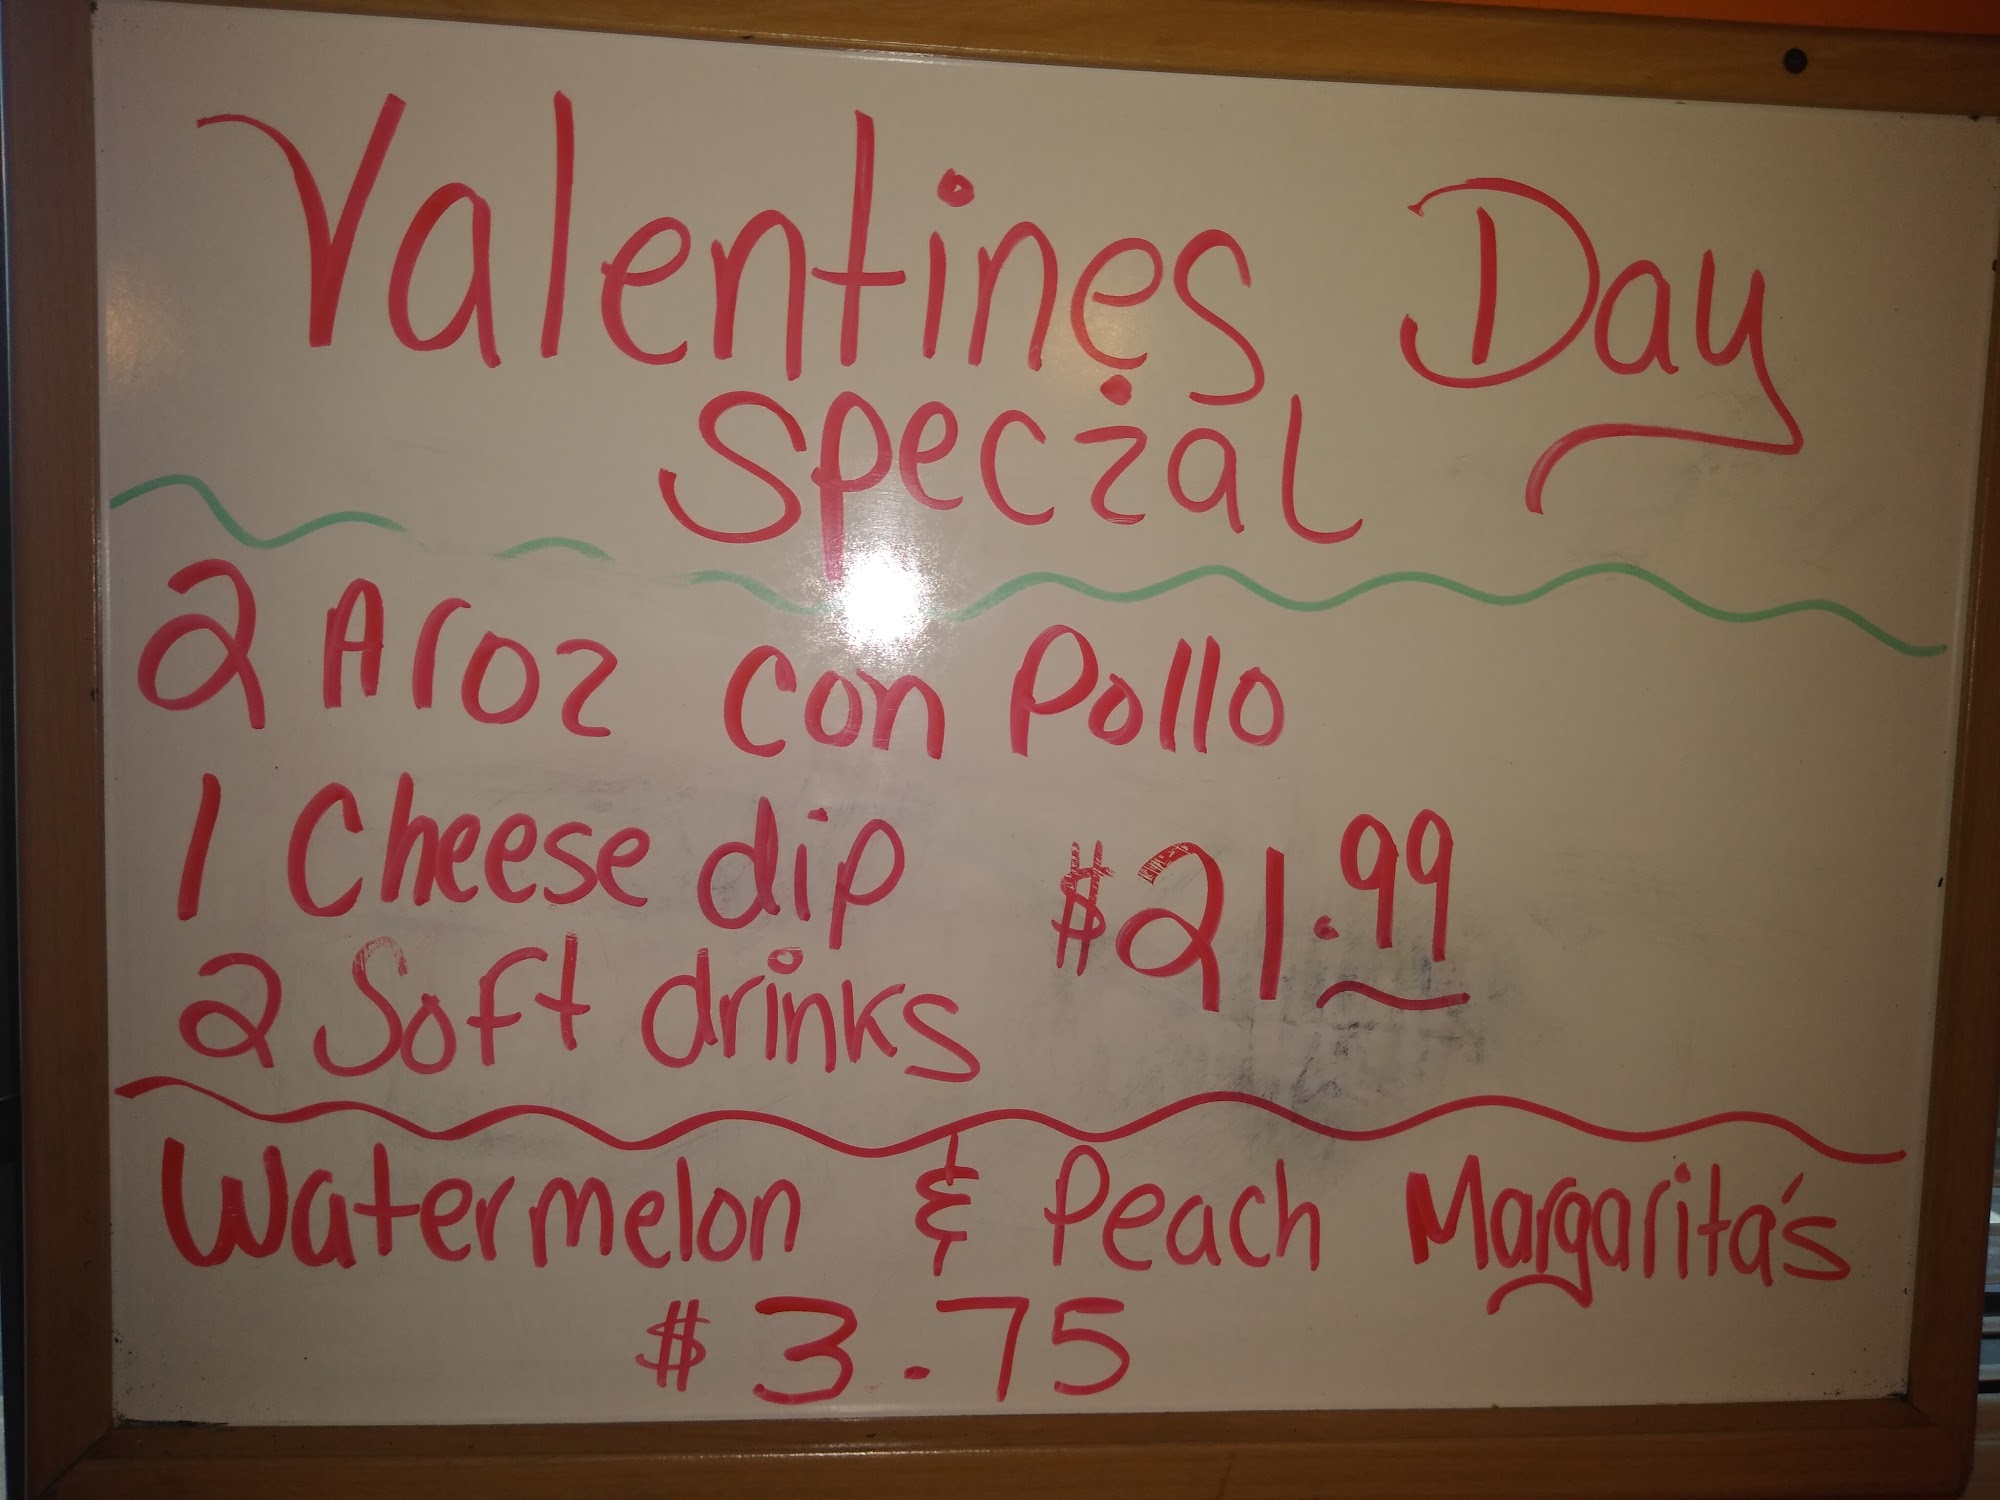 Valentines Day
Special
2 Aroz con Pollo
1 Cheese dip
$21.99
2 Soft drinks
Watermelon & Peach Margarita's
$3.75